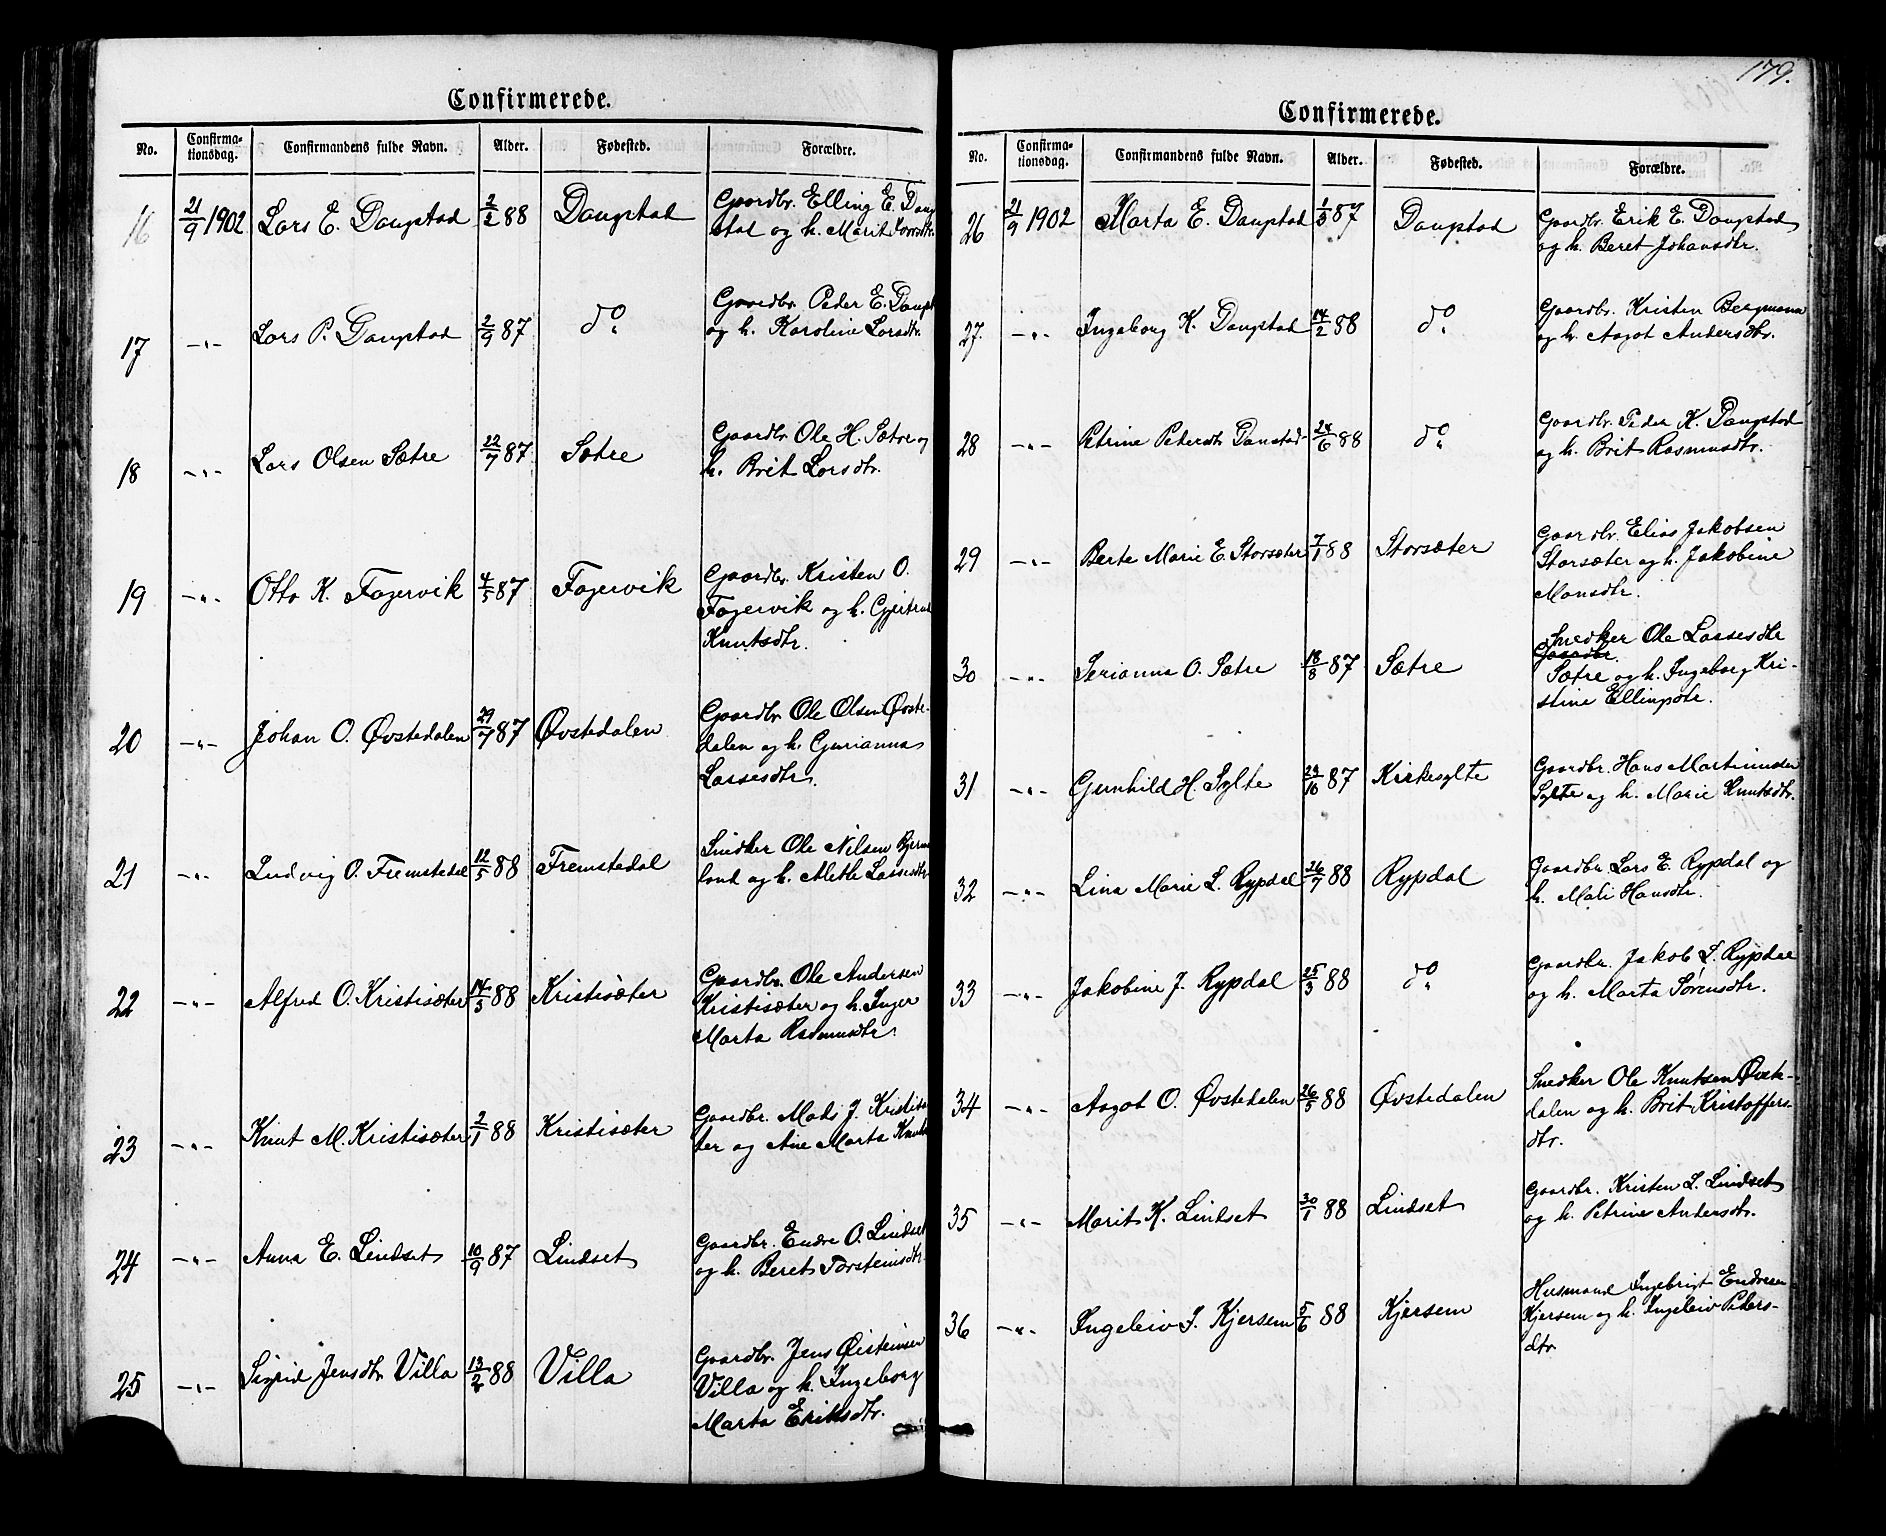 Confirmerede.
No. Confirma-tionsdag. Confirmandens fulde Navn. Alder. Fødested. Forældre.
16 21/9 1902 Lars E. Daugstad 2/2 88 Daugstad Gaardbr. Elling E. Daug
stad og h. Marit Larsdtr.
17 -"- Lars P. Daugstad 2/9 87 do Gaardbr. Peder E. Daugst
og h. Karoline Larsdtr.
18 -"- Lars Olsen Sætre 22/7 87 Sætre Gaardbr. Ole H. Sætre og
h. Brit Larsdtr.
19 -"- Otto K. Fagervik 4/5 87 Fagervik Gaardbr. Kristen O.
Fagervik og h. Gjertrud
Knutsdtr.
20 -"- Johan O. Øvstedalen 29/7 87 Øvstedalen Gaardbr. Ole Olsen Øvste-
dalen og h. Gurianna
Lassesdtr.
21 -"- Ludvig O. Fremstedal 12/5 88 Fremstedal Snedker Ole Nilsen Bjerme
land og h. Mette Lassesdtr.
22 -"- Alfred O. Kristisæter 14/3 88 Kristisæter Gaardbr. Ole Andersen
Kristisæter og h. Inger
Marta Rasmusdtr.
23 -"- Knut M. Kristisæter 2/1 88 Kristisæter Gaardbr. Mads J. Kristisæ
ter og Ane Marta Knuts
24 -"- Anna E. Lindset 10/9 87 Lindset Gaardbr. Endre O. Lindset
og h. Beret Torsteinsdtr.
25 -"- Sigrid Jensdtr. Villa 13/2 88 Villa Gaardbr. Jens Øisteinsen
Villa og h. Ingeborg
Marta Eriksdtr.
179.
Confirmerede.
No. Confirma-tionsdag. Confirmandens fulde Navn. Alder. Fødested. Forældre.
26 21/9 1902 Marta E. Daugstad 1/3 87 Daugstad Gaardbr. Erik E. Daugstad
og h. Beret Johansdtr.
27. -"- Ingeborg K. Daugstad 14/2 88 do Gaardbr. Kristen Bergmann
og h. Aagot Andersdtr.
28 -"- Petrine Petersdtr. Daustad 24/6 88 do Gaardbr. Peder K. Daugstad
og h. Brit Rasmusdtr.
29 -"- Berte Marie E. Storsæter 7/1 88 Storsæter Gaardbr. Elias Jakobsen
Storsæter og h. Jakobine
Monsdtr.
30 -"- Serianna O. Sætre 18/8 87 Sætre Snedker Ole Lassesdtr
Gaardbr.
Sætre og h. Ingeborg Kri-
stine Ellingsdtr.
31 -"- Gunhild H. Sylte 24/10 87 Kirkesylte Gaardbr. Hans Martinusen
Sylte og h. Marie Knutsdtr.
32 -"- Lina Marie L. Rypdal 26/7 88 Rypdal Gaardbr. Lars E. Rypdal og
h. Mali Hansdtr.
33 -"- Jakobine J. Rypdal 25/3 88 do Gaardbr. Jakob L. Rypdal
og h. Marta Sørensdtr.
34 -"- Aagot O. Øvstedalen 26/5 88 Øvstedalen Snedker Ole Knutsen Øvste-
dalen og h. Brit Kristoffers-
dtr.
35 -"- Marit K. Lindset 30/1 88 Lindset Gaardbr. Kristen L. Lindset
og h. Petrine Andersdtr.
36 -"- Ingeleiv I. Kjersem 5/6 88 Kjersem Husmand Ingebrigt Endresen
Kjersem og h. Ingeleiv Peders-
dtr.